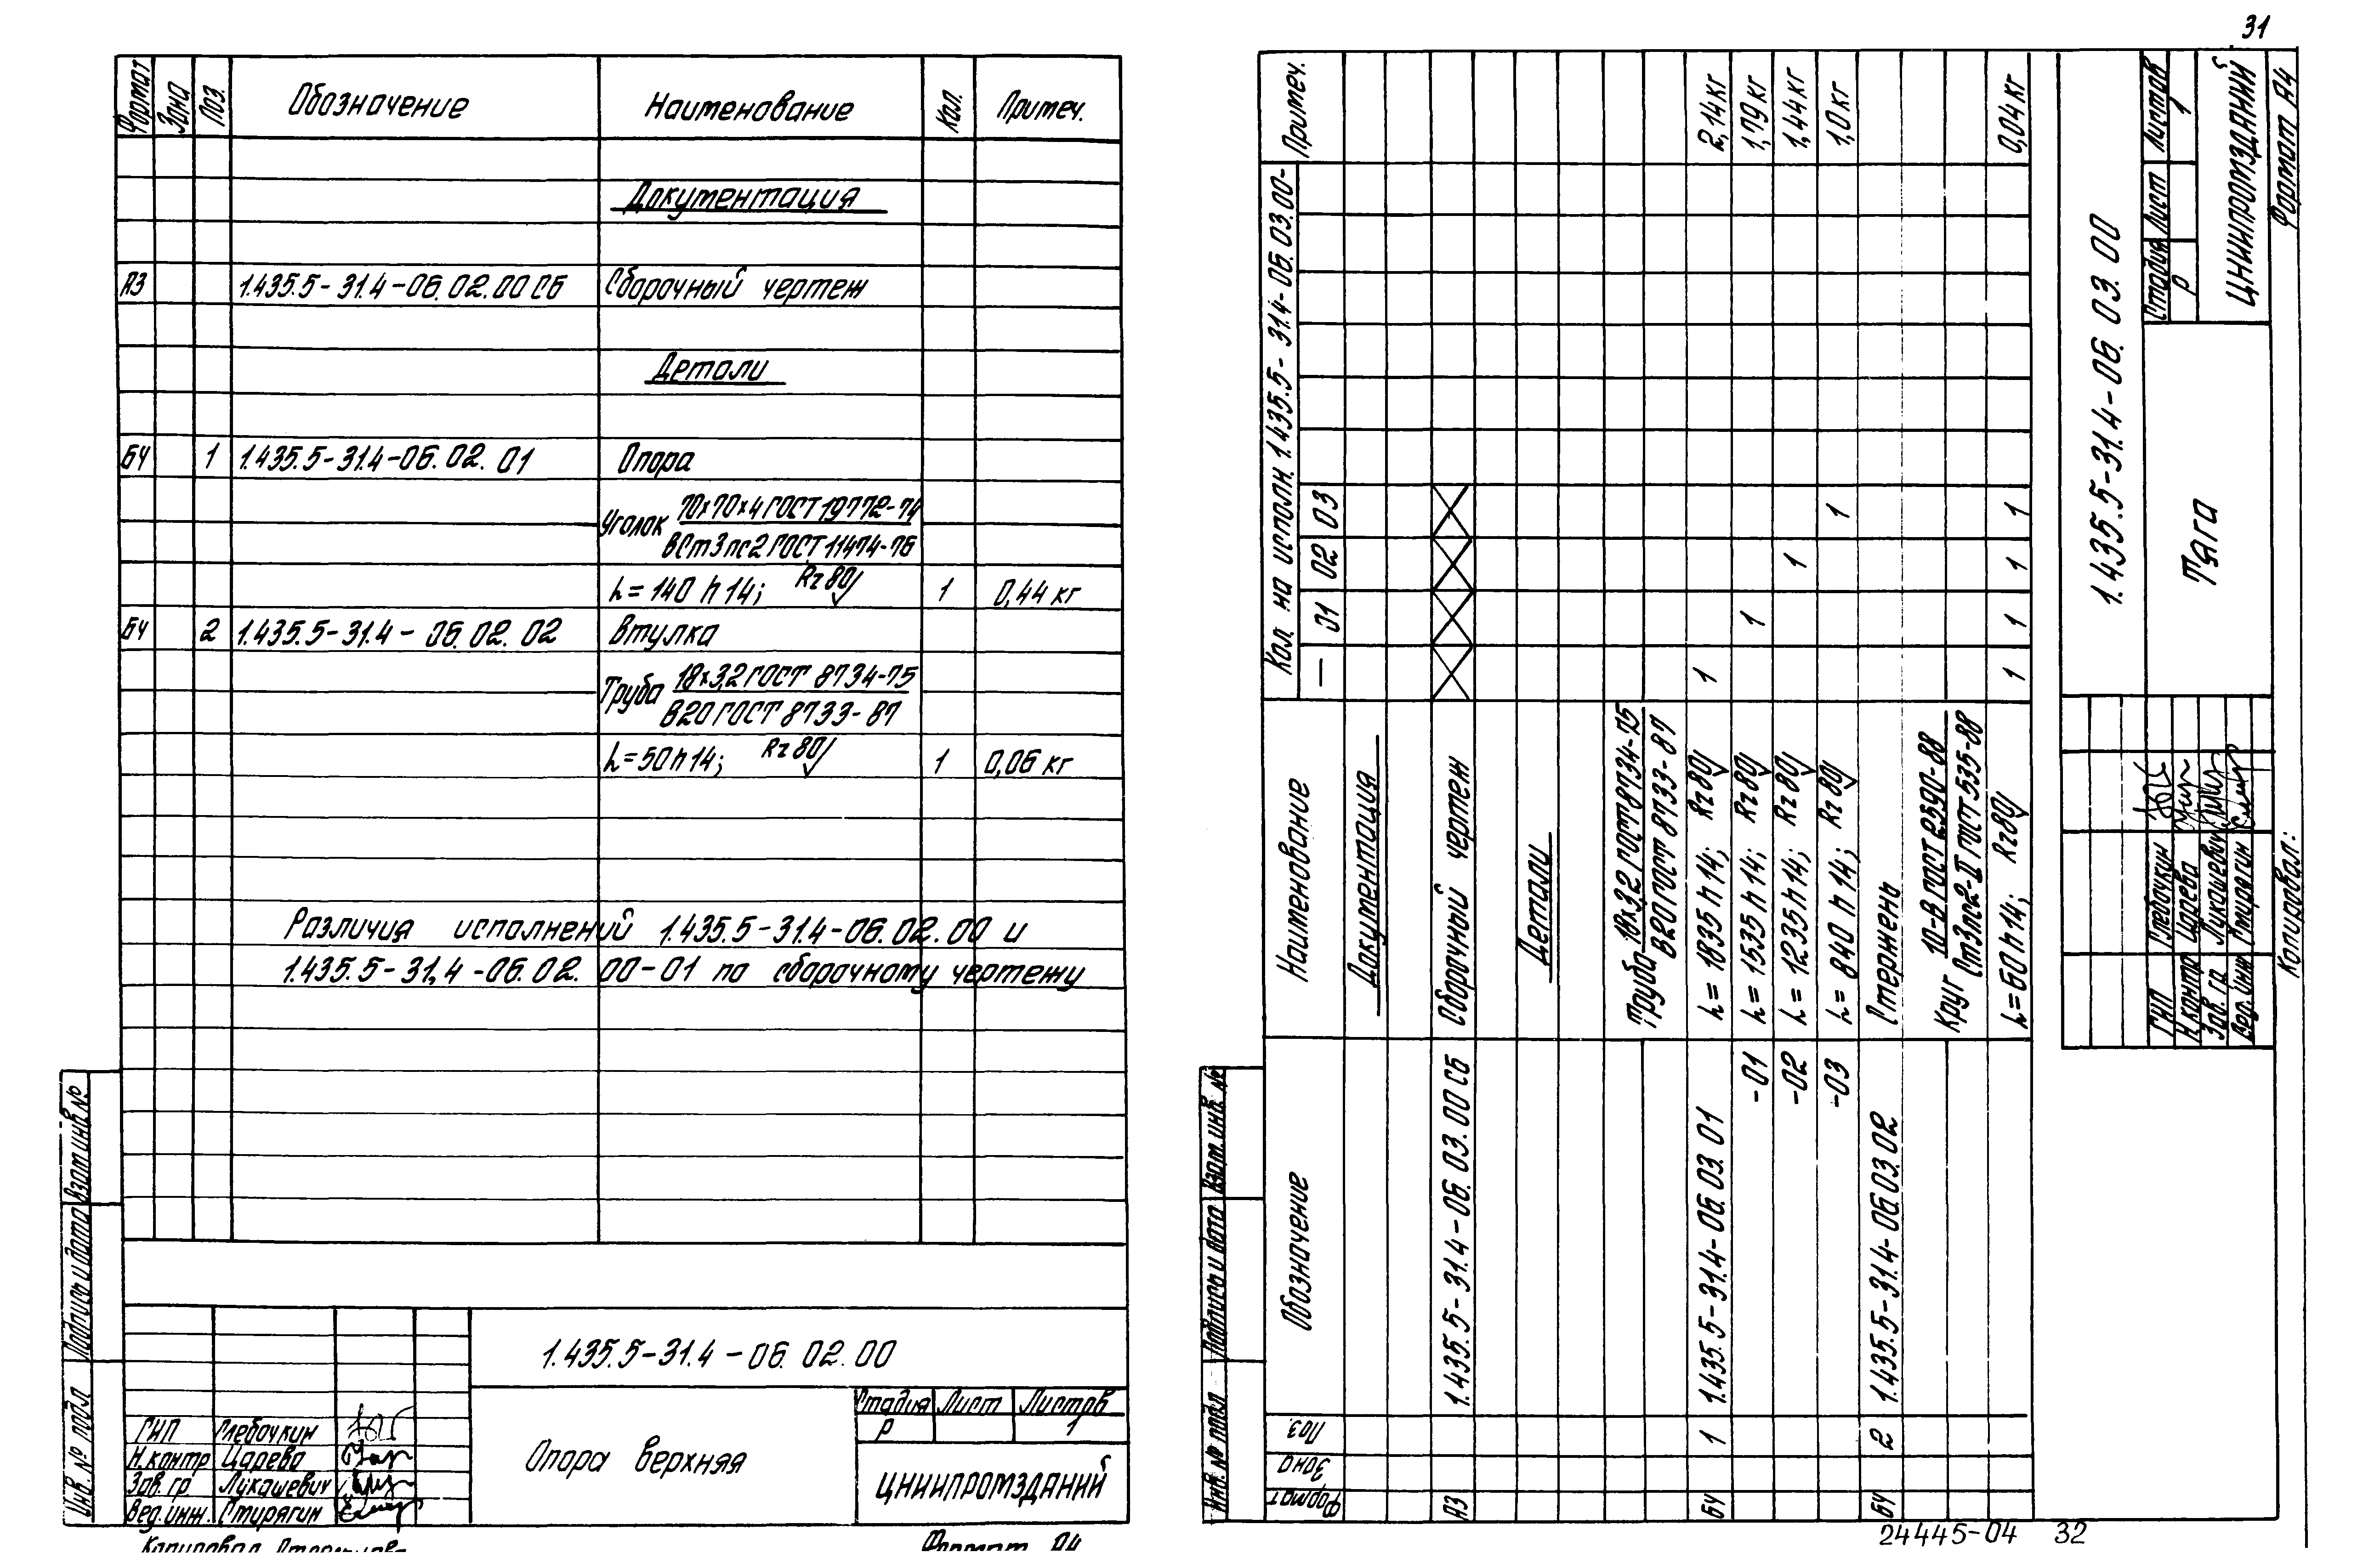 31
Формат Зона Поз. Обозначение Наименование Кол. Примеч.
Документация
А3 1.435.5-31.4-06.02.00 СБ Сборочный чертеж
Детали
БЧ 1 1.435.5-31.4-06.02.01 Опора
Уголок 70×70×4 ГОСТ 19772-74
ВСт3пс2 ГОСТ 11474-76
L=140 h14; Rz80 1 0,44 кг
БЧ 2 1.435.5-31.4-06.02.02 Втулка
Труба 18×3,2 ГОСТ 8734-75
В20 ГОСТ 8733-87
L=50h14; Rz80 1 0,06 кг
Различия исполнений 1.435.5-31.4-06.02.00 и
1.435.5-31.4-06.02.00-01 по сборочному чертежу
Инв. № подл Подпись и дата Взам инв №
1.435.5-31.4-06.02.00
ГИП Глебочкин
Н.контр Царева
Зав. гр Лукашевич
Вед. инж. Стирягин
Опора верхняя
Стадия Лист Листов
Р 1
ЦНИИПРОМЗДАНИЙ
Копировал
Формат А4
Формат Зона Поз Обозначение Наименование Кол. на исполн. 1.435.5-31.4-06.03.00- Примеч.
— 01 02 03
Документация
А3 1.435.5-31.4-06.03.00 СБ Сборочный чертеж
Детали
Труба 18×3,2 ГОСТ 8734-75
В20 ГОСТ 8733-87
БЧ 1 1.435.5-31.4-06.03.01 L=1835 h14; Rz80 1 2,14 кг
-01 L=1535 h14; Rz80 1 1,79 кг
-02 L=1235 h14; Rz80 1 1,44 кг
-03 L=840 h14; Rz80 1 1,0 кг
БЧ 2 1.435.5-31.4-06.03.02 Стержень
Круг 10-В ГОСТ 2590-88
Ст3пс2-II ГОСТ 535-88
L=60h14; Rz80 1 1 1 1 0,04 кг
Инв. № подл Подпись и дата Взам. инв. №
1.435.5-31.4-06.03.00
ГИП Глебочкин
Н контр Царева
Зав. гр Лукашевич
Вед. инж Стирягин
Тяга
Стадия Лист Листов
Р 1
ЦНИИПРОМЗДАНИЙ
Копировал:
Формат А4
24445-04 32